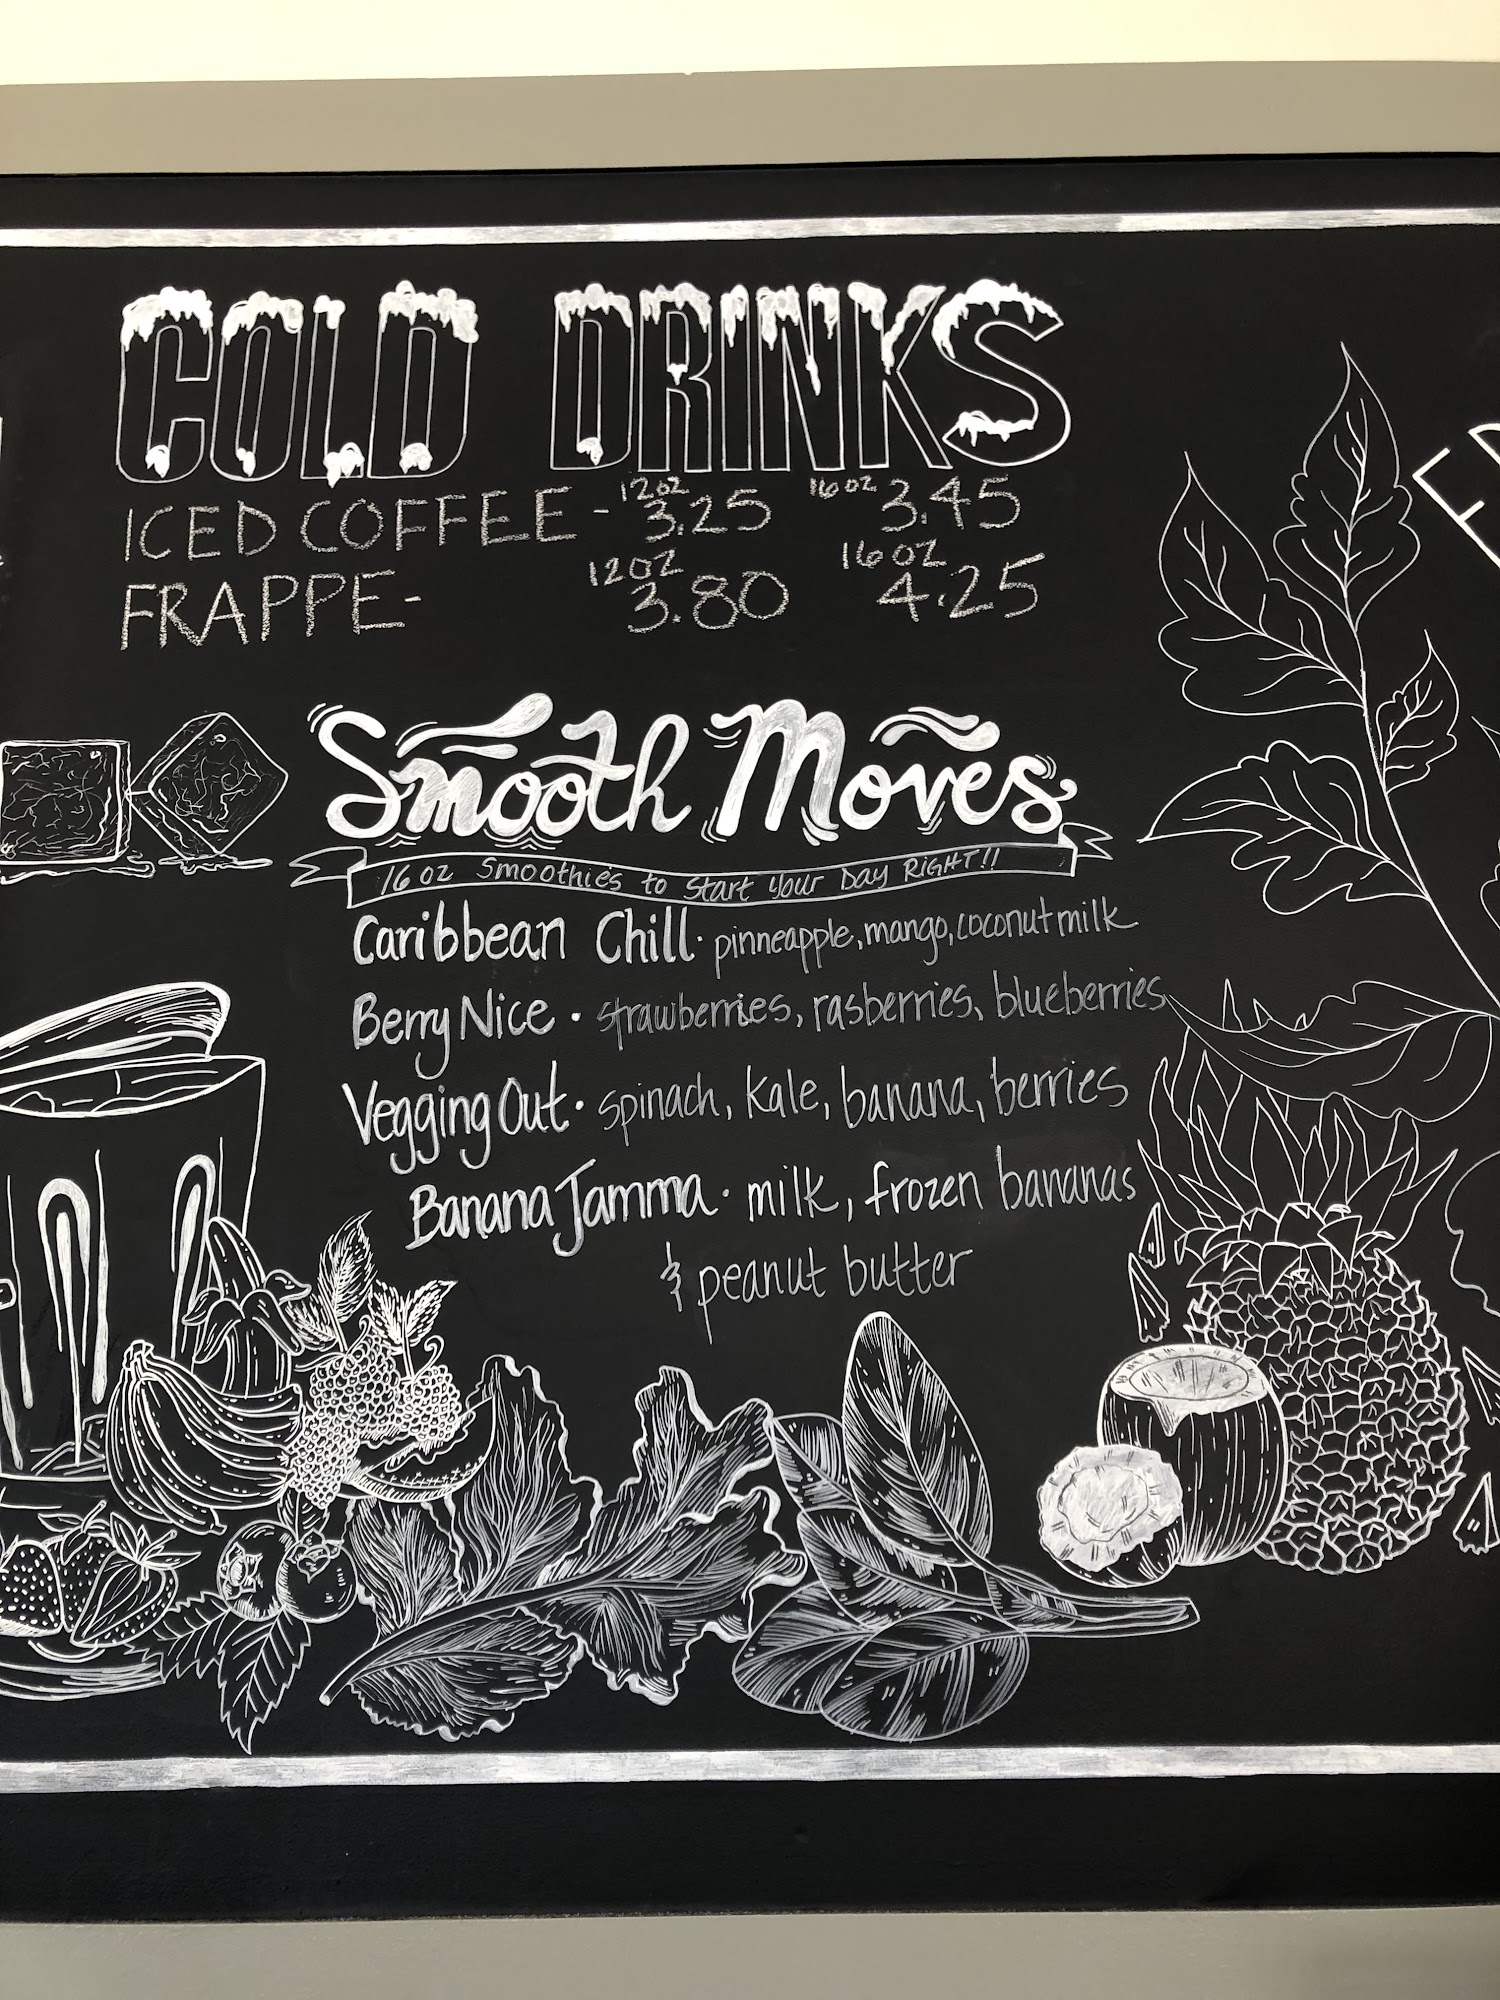 COLD DRINKS
ICED COFFEE - 12oz 3.25 16oz 3.45
FRAPPE- 12oz 3.80 16oz 4.25
Smooth Moves
16 oz Smoothies to Start Your Day RIGHT!!
Caribbean Chill · pinneapple, mango, coconut milk
Berry Nice · strawberries, rasberries, blueberries
Vegging Out · spinach, kale, banana, berries
Banana Jamma · milk, frozen bananas
& peanut butter